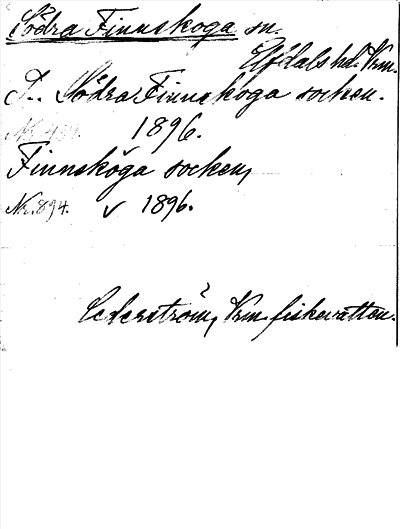 Södra Finnskoga sn.
Elfdals hd. Vrm.
I.. Södra Finnskoga socken.
1896.
Finnskoga socken,
Nr. 894. v 1896.
Cederström, Vrm. fiskevatten.